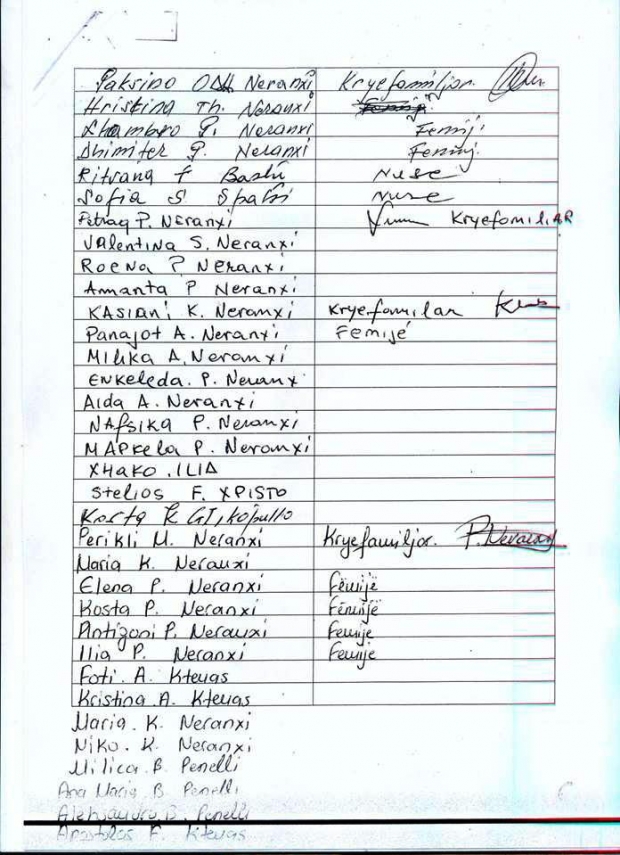 Paksino Neranxi Kryefamiljar.
Hristina Th. Neranxi Femij
Lhambro P. Neranxi Femij.
Dhimiter P. Neranxi Femij.
Ritvana f Bashu Nuse
Sofia S Spahi Nuse
Petraq P. Neranxi KryefamiliAR
Valentina S. Neranxi
Roena P Neranxi
Amanta P Neranxi
KASIANi K. Neranxi Kryefamilar
Panajot A. Neranxi Femijé
Milika A. Neranxi
ENKeleda. P. Neranx
Aida A. Neranxi
NAfsika P. Neranxi
MAPKela P. Neranxi
XHAKO . ILIA
Stelios F. XPISTO
Kosta
Perikli M. Neranxi Kryefamiljar. P. Neranxi
Maria K. Neranxi
Elena P. Neranxi Fëmijë
Kosta P. Neranxi Fëmijë
Antigoni P. Neranxi Femije
Ilia P. Neranxi Femije
Foti . A. Ktenas
Kristina . A. Ktenas
Maria. K. Neranxi
Niko. K. Neranxi
Milica. B. Penelli
Ana Maria. B. Penelli
Aleksandro B. Penelli
Apostolos F. Ktenas